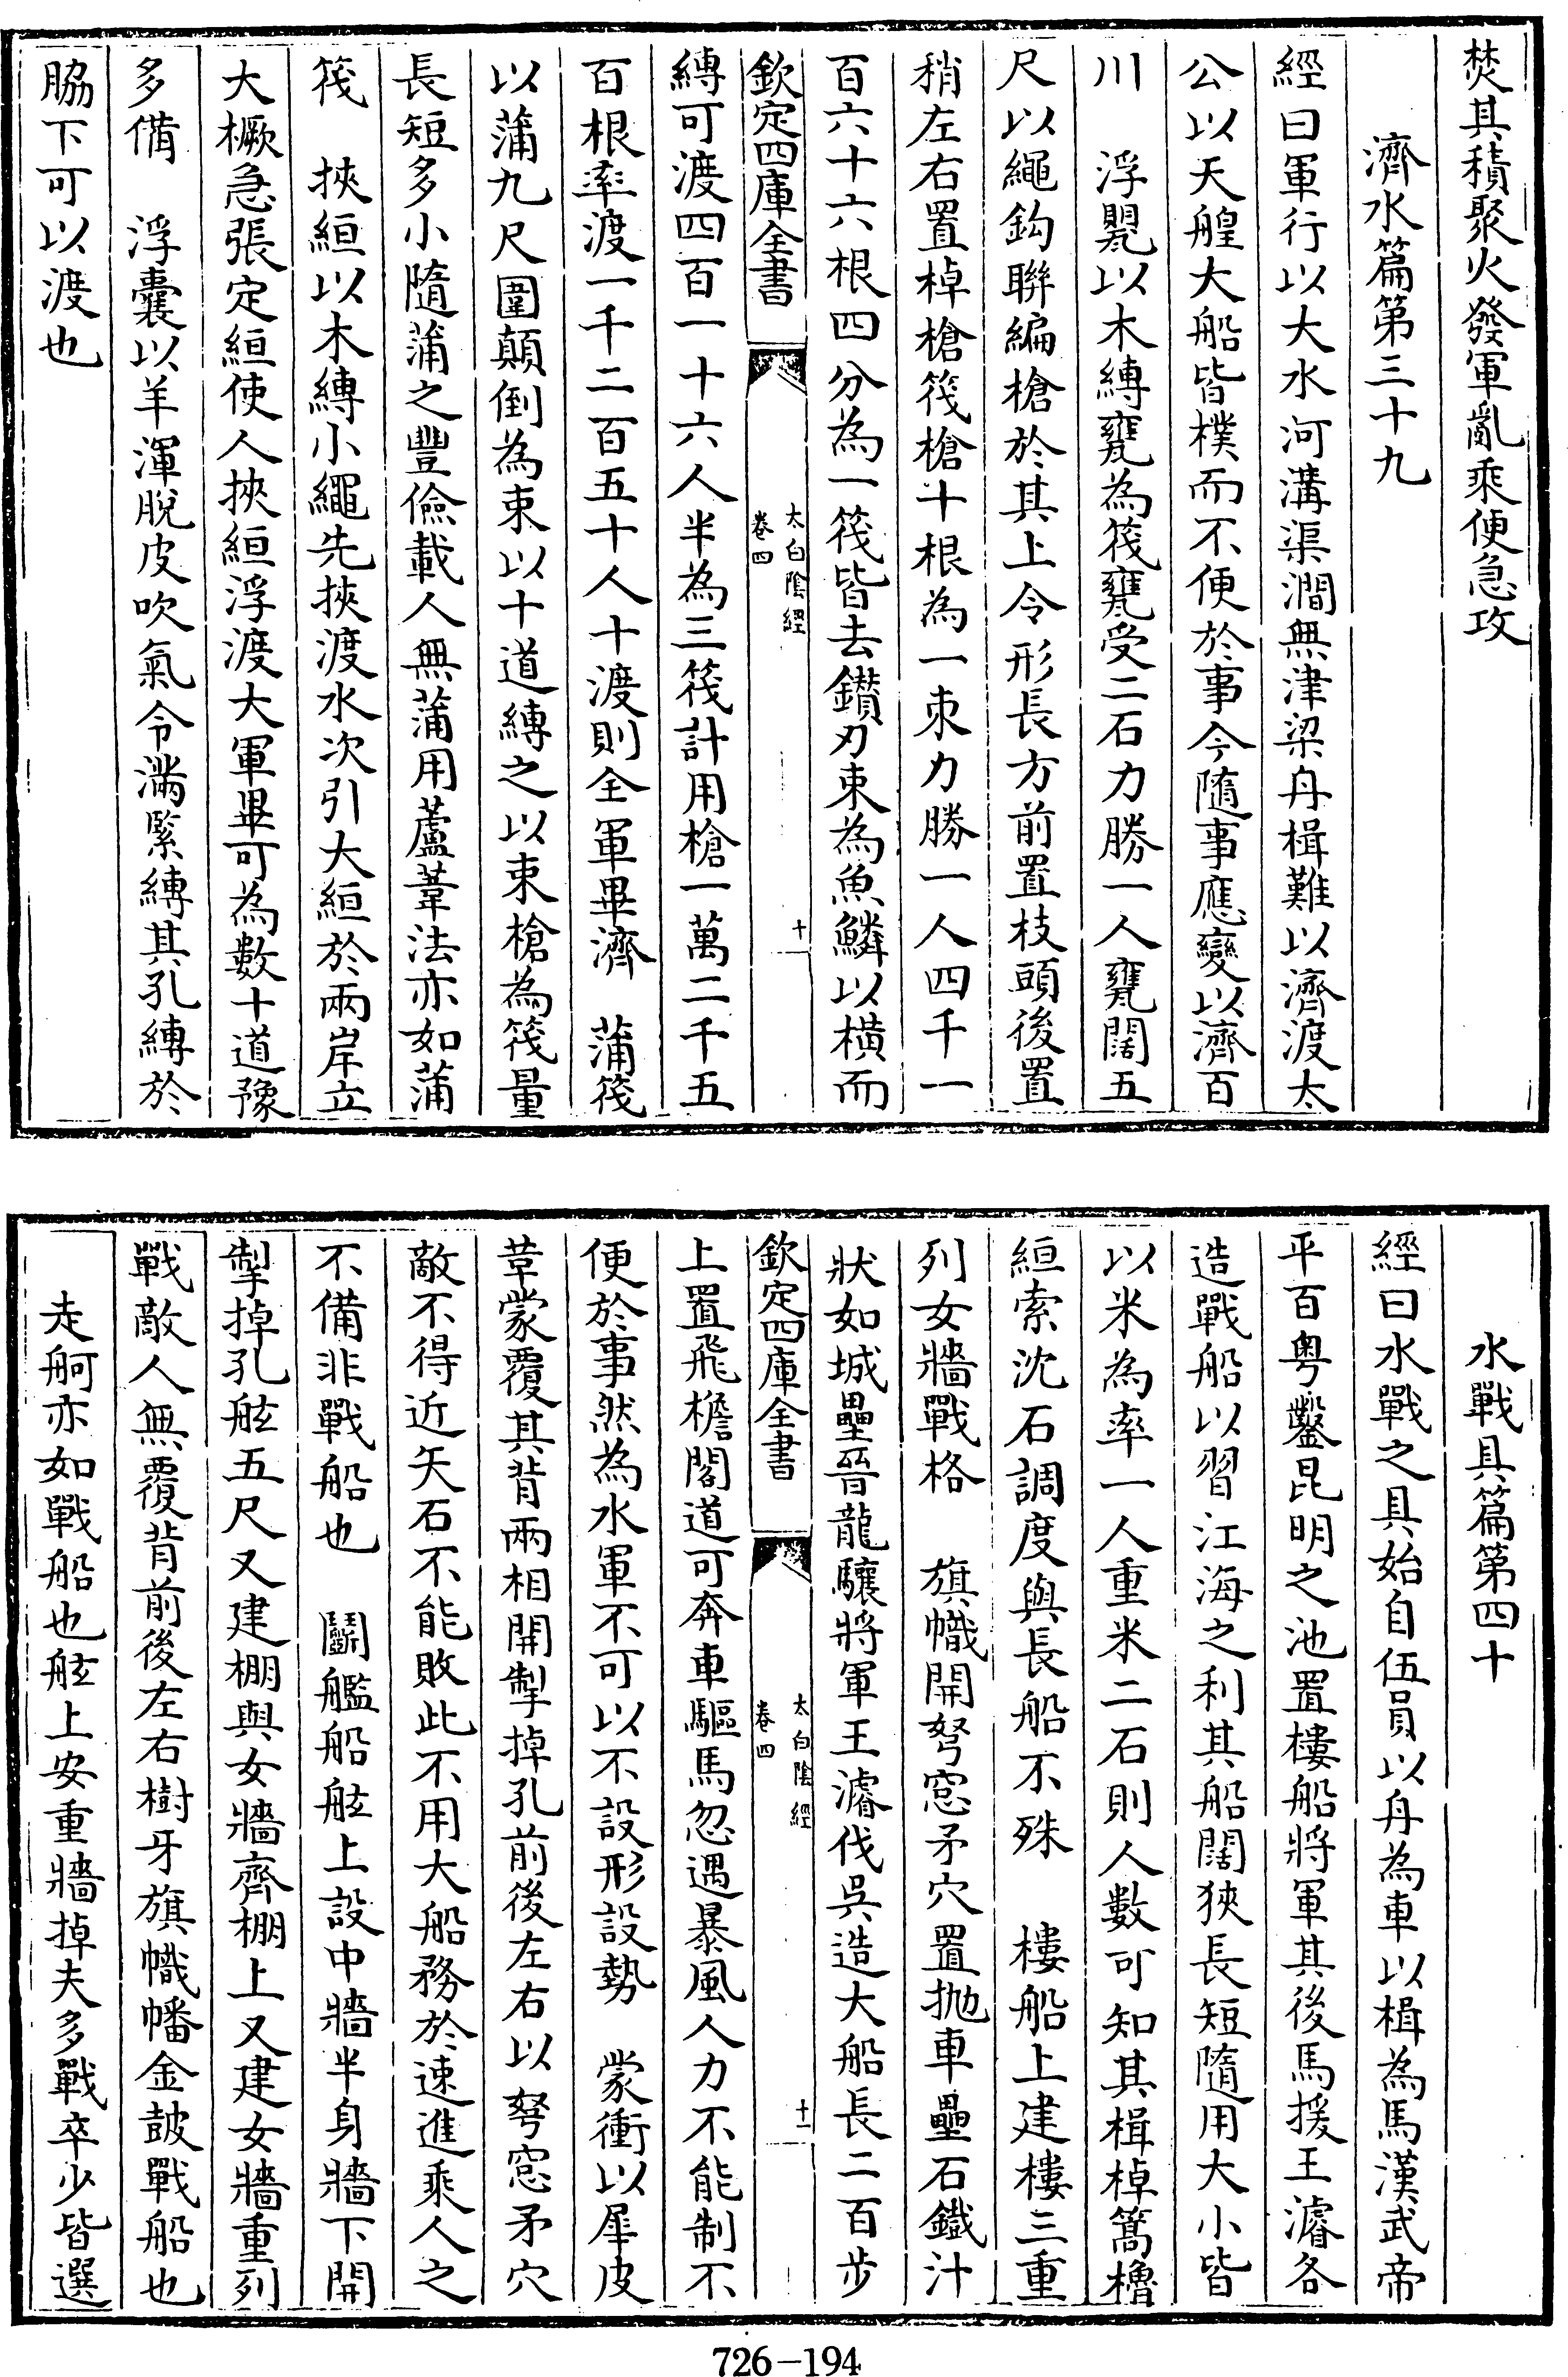 焚其積聚火發軍亂乘便急攻
濟水篇第三十九
經曰軍行以大水河溝渠澗無津梁舟楫難以濟渡太
公以天艎大船皆樸而不便於事今隨事應變以濟百
川　浮甖以木縛甕為筏甕受二石力勝一人甕闊五
尺以繩鈎聯編槍於其上令形長方前置枝頭後置
稍左右置棹槍筏槍十根為一束力勝一人四千一
百六十六根四分為一筏皆去鑽刃束為魚鱗以橫而
欽定四庫全書
太白陰經
卷四
十
縛可渡四百一十六人半為三筏計用槍一萬二千五
百根率渡一千二百五十人十渡則全軍畢濟　蒲筏
以蒲九尺圍顛倒為束以十道縛之以束槍為筏量
長短多小隨蒲之豐儉載人無蒲用蘆葦法亦如蒲
筏　挾絙以木縛小繩先挾渡水次引大絙於兩岸立
大橛急張定絙使人挾絙浮渡大軍畢可為數十道豫
多備　浮囊以羊渾脫皮吹氣令滿緊縛其孔縛於
脇下可以渡也
水戰具篇第四十
經曰水戰之具始自伍員以舟為車以楫為馬漢武帝
平百粵鑿昆明之池置樓船將軍其後馬援王濬各
造戰船以習江海之利其船闊狹長短隨用大小皆
以米為率一人重米二石則人數可知其楫棹篙櫓
絙索沈石調度與長船不殊　樓船上建樓三重
列女牆戰格　旗幟開弩窓矛穴置拋車壘石鐵汁
狀如城壘晉龍驤將軍王濬伐吳造大船長二百步
欽定四庫全書
太白陰經
卷四
十一
上置飛檐閣道可奔車驅馬忽遇暴風人力不能制不
便於事然為水軍不可以不設形設勢　蒙衝以犀皮
草蒙覆其背兩相開掣掉孔前後左右以弩窓矛穴
敵不得近矢石不能敗此不用大船務於速進乘人之
不備非戰船也　鬭艦船舷上設中牆半身牆下開
掣掉孔舷五尺又建棚與女牆齊棚上又建女牆重列
戰敵人無覆背前後左右樹牙旗幟幡金鼓戰船也
走舸亦如戰船也舷上安重牆掉夫多戰卒少皆選
726-194